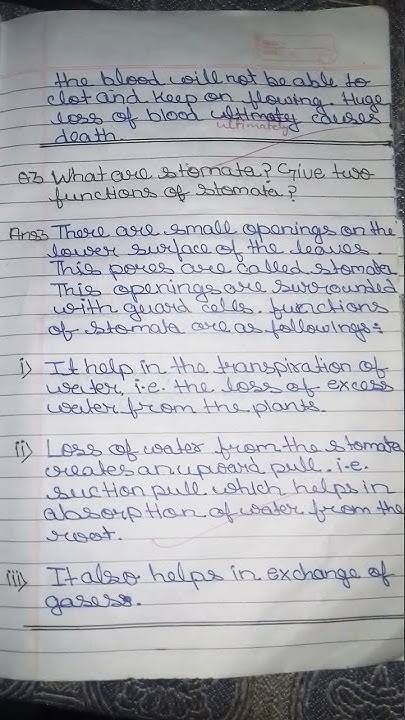 the blood will not be able to
clot and keep on flowing. Huge
loss of blood ultimaty causes
ultimately
death
Q3 What are stomata? Give two
functions of stomata?
Ans3 There are small openings on the
lower surface of the leaves.
This pores are called stomata.
This openings are surrounded
with guard cells. functions
of stomata are as followings:
i) It help in the transpiration of
water, i.e. the loss of excess
water from the plants.
ii) Loss of water from the stomata
creates an upward pull. i.e.
suction pull which helps in
absorption of water from the
root.
iii) It also helps in exchange of
gases.